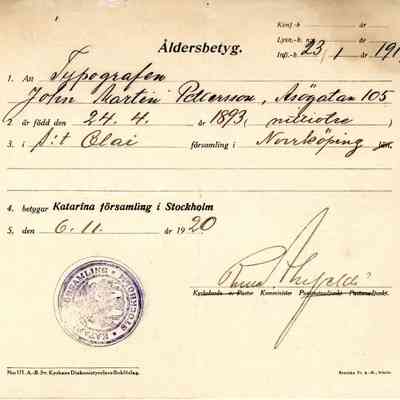 Konf.-b. år
Åldersbetyg.
Lysn.-b. nr år
Infl.-b. 23/1 år 191
1. An Typografen
John Martin Pettersson, Åsögatan 105
2. är född den 24.4. år 1893, (nittiotre)
3. i S:t Olai församling i Norrköping län.
4. betygar Katarina församling i Stockholm
5. den 6.11. år 1920
Kyrkoherde v. Pastor Komminister Pastoratsadjunkt
FÖRSAMLING · STOCKHOLM · KATARINA
N:o 171. A.-B. Sv. Kyrkans Diakonistyrelses Bokförlag.